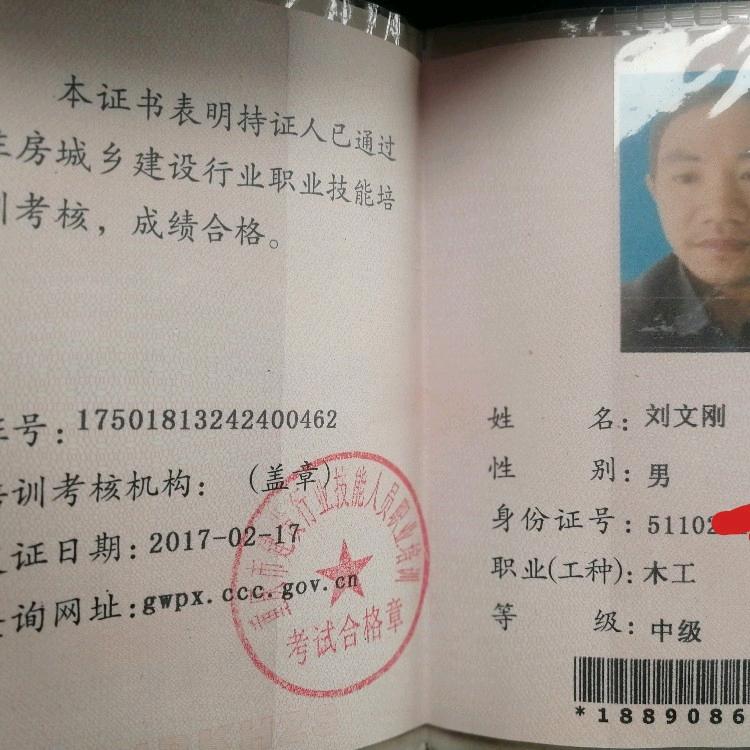 本证书表明持证人已通过
住房城乡建设行业职业技能培
训考核，成绩合格。
证号：17501813242400462
培训考核机构：（盖章）
发证日期：2017-02-17
查询网址：gwpx.ccc.gov.cn
建设行业技能人员职业培训
考试合格章
姓 名：刘文刚
性 别：男
身份证号：51102
职业(工种)：木工
等 级：中级
*1889086